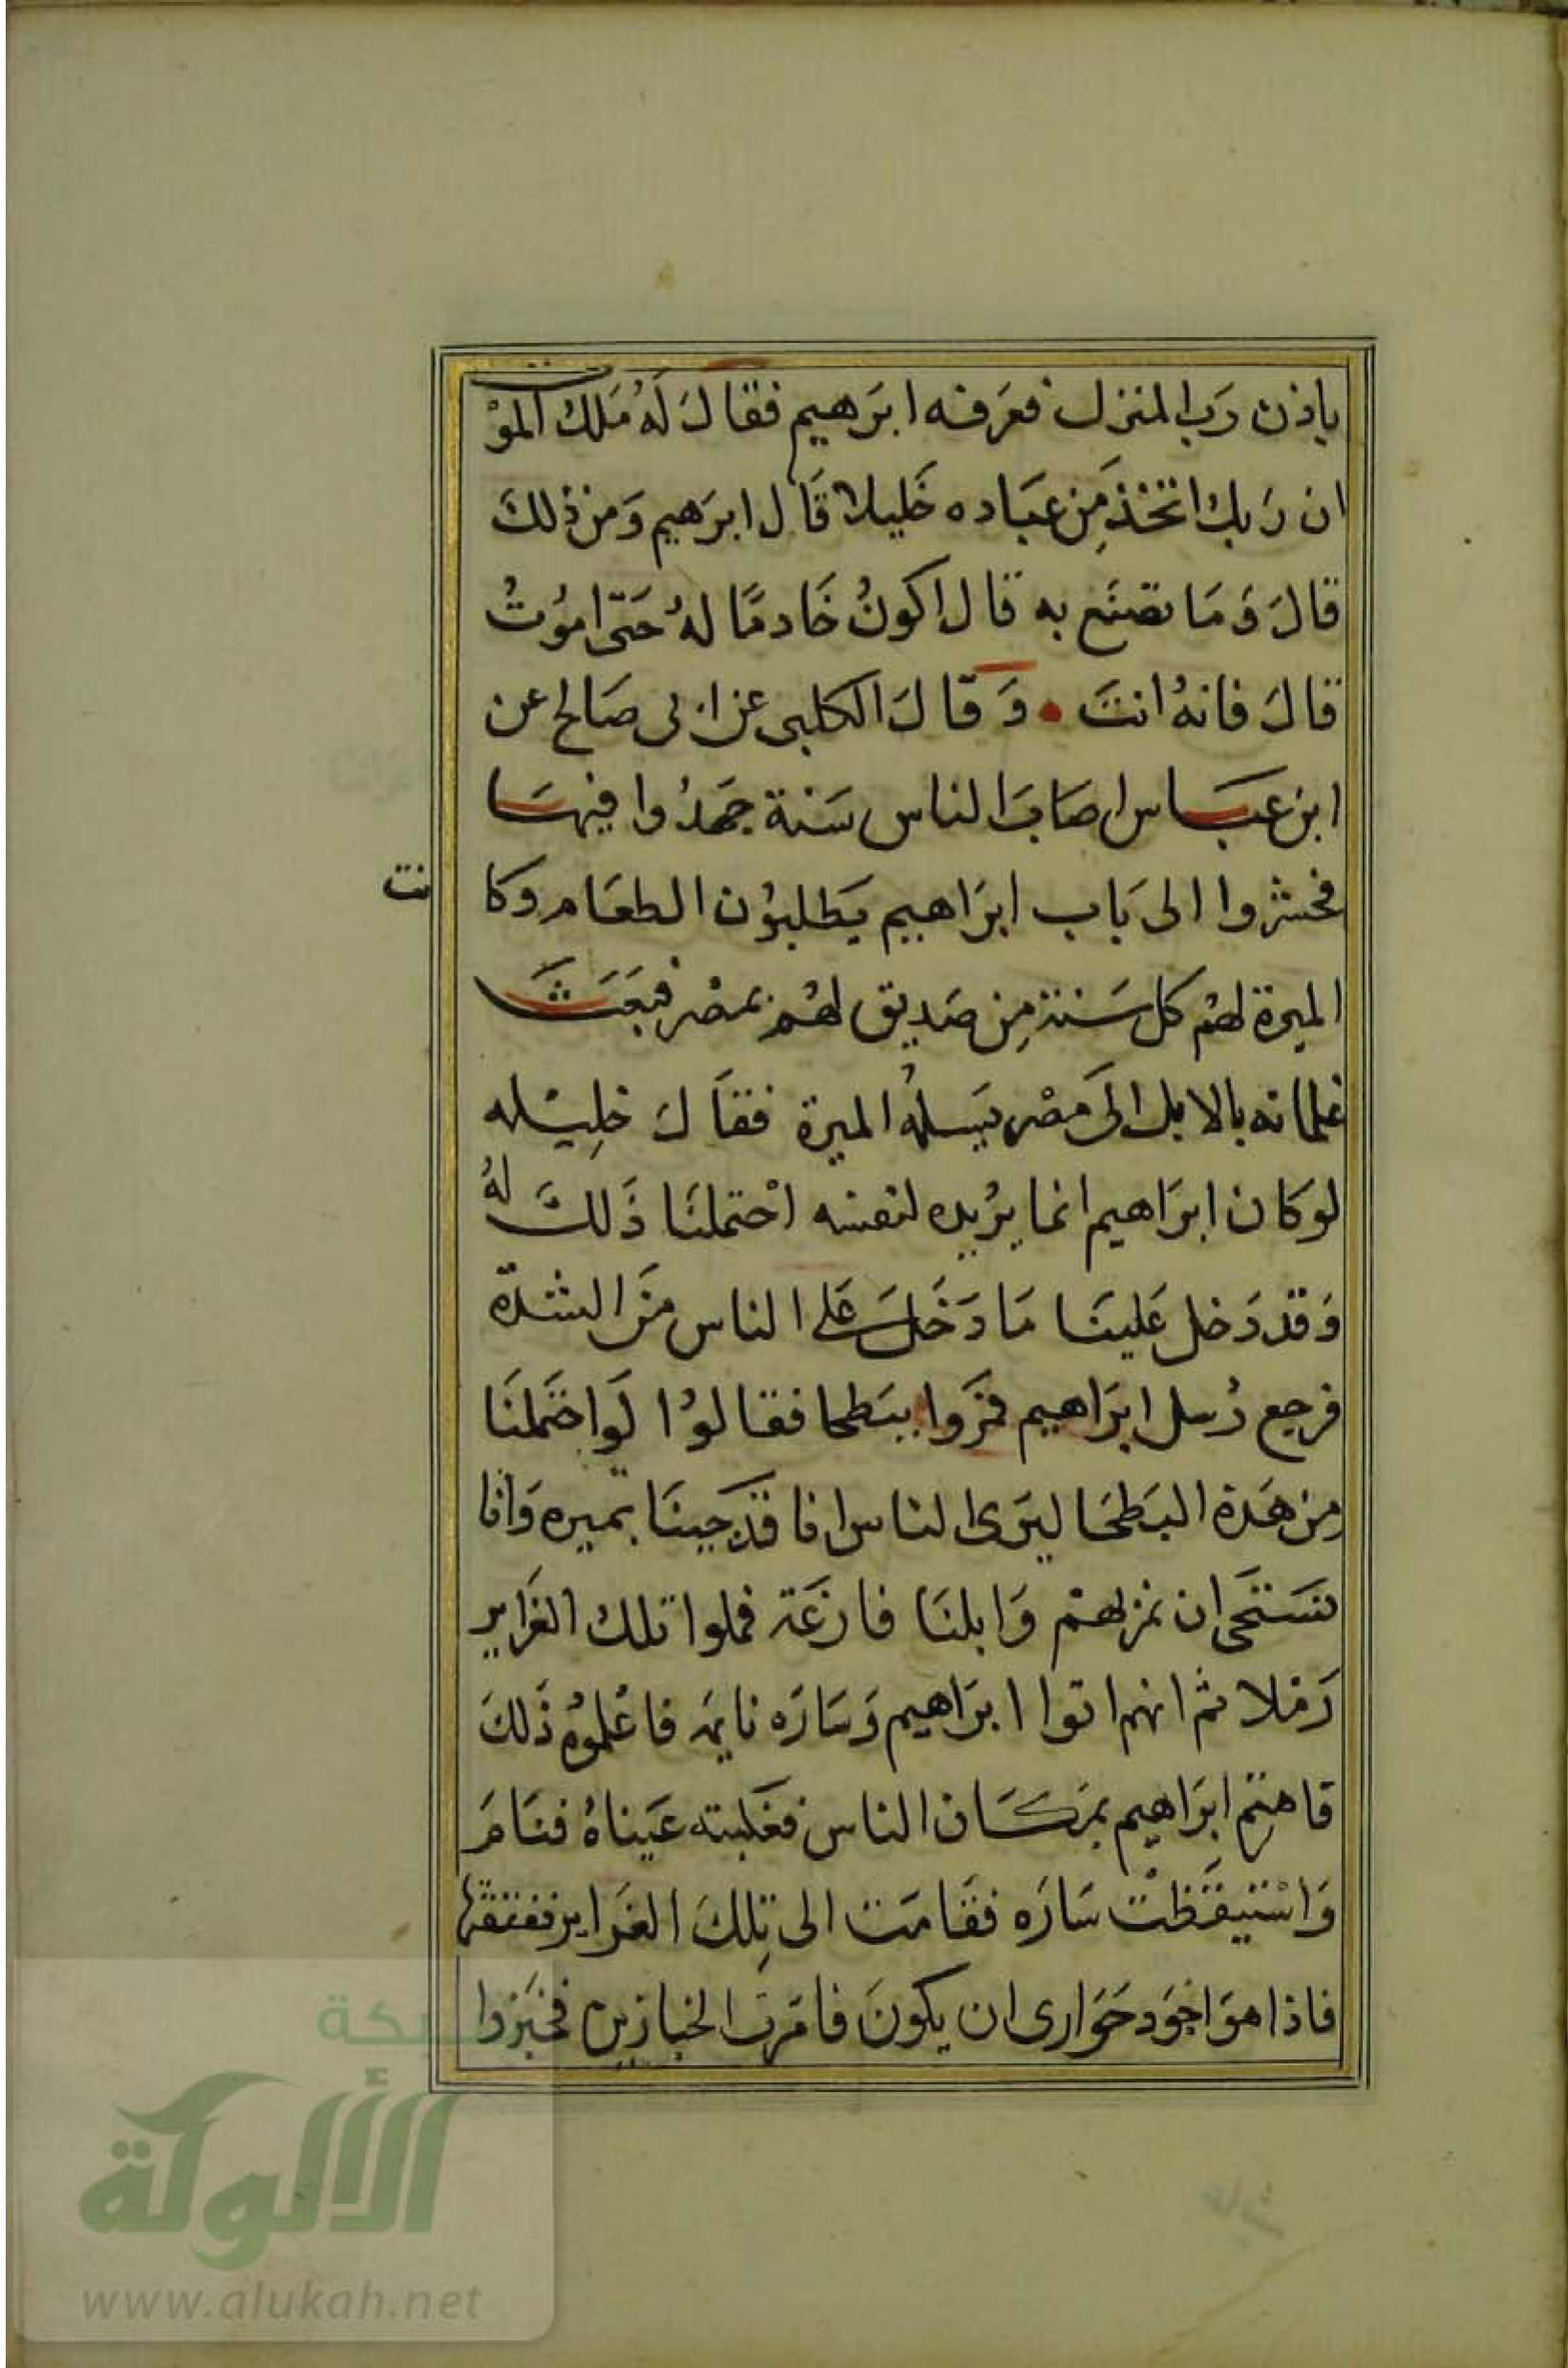 باذن رَب المنزل فعَرفه ابرَهيم فقالَ لَهُ مَلك الموْت
ان رَبك اتخذ مِن عبَاده خَليلا قَال ابرَهيم وَمن ذلكَ
قالَ وَمَا تصنَع به قال اكونُ خَادمًا لهُ حَتى امُوتُ
قالَ فانهُ انتَ • وَقالَ الكلبى عن ابى صَالح عن
ابن عبَاس اصَابَ الناس سَنة جهدُوا فيهَا
فحشروا الى بَاب ابرَاهيم يَطلبوُن الطعَام وكانت
الميرة لهُم كل سَنة مِن صَديق لهُم بمصْر فبَعَثَ
غلمانه بالابل الَى مصْر يَسلهُ الميرة فقاَلَ خلِيْله
لو كان ابرَاهيم انما يرُيده لنفسه احْتملنَا ذَلكَ لهُ
وَقد دَخل عَلينَا مَا دَخَلَ عَلى الناس منَ الشدة
فرجع رُسل ابرَاهيم فمرَوا ببَطحا فقالوُا لَو احتَملنَا
من هَذة البَطحَا ليَرى الناس انا قد جينَا بميره وَانا
نسَتَحى ان نمر بهمْ وَابلنَا فارغَة فملوا تلك الغَراير
رَملا ثم انهم اتوا ابرَاهيم وَسَارَه نايمَة فاعْلموُه ذَلكَ
فاهتمِ ابرَاهيم بمَكَان الناس فغَلبته عَيناهُ فنَامَ
وَاسْتيقَظْت سَارَه فقَامَت الى تِلكَ الغَراير ففتقتها
فاذا هوَ اجوَد حَوَارى ان يكونَ فامَرت الخبازين فخبَزوا
شبكة
الألوكة
www.alukah.net